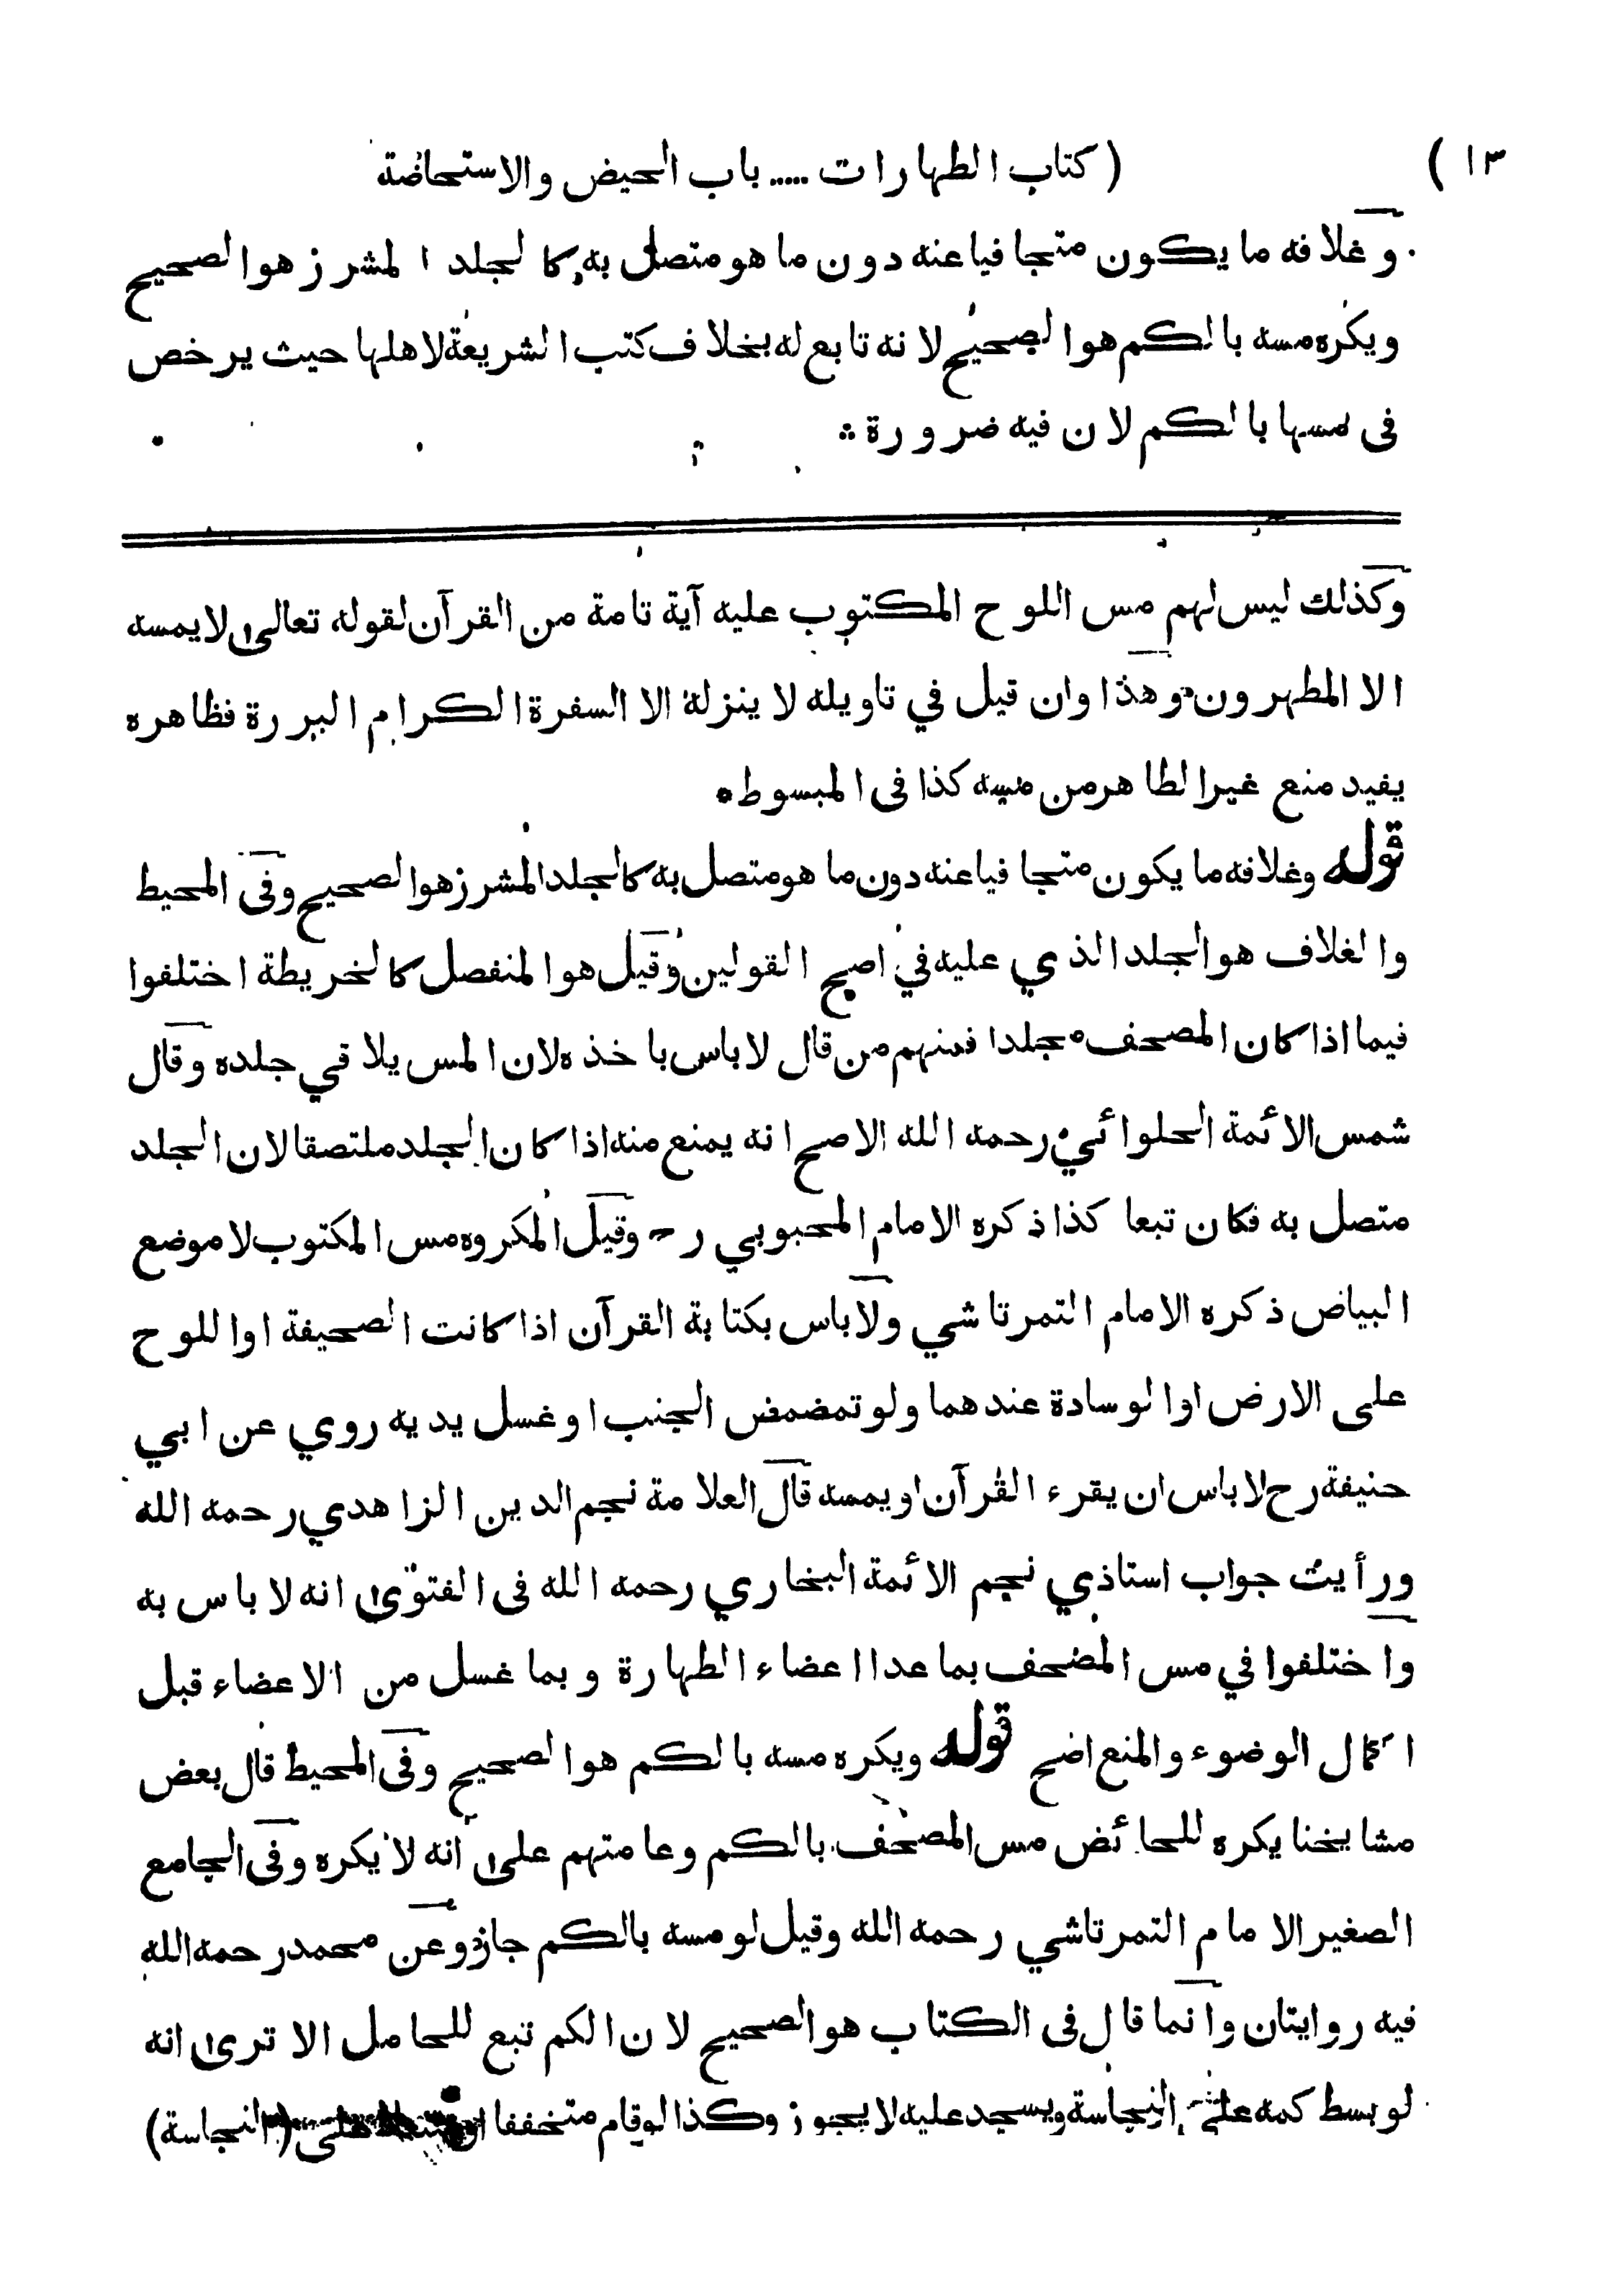 ( كتاب الطهارات ..... باب الحيض والاستحاضة ( ١٣
وغلافه ما يكون متجافيا عنه دون ما هو متصل به كالجلد المشرز هو الصحيح
ويكره مسه بالكم هو الصحيح لانه تابع له بخلاف كتب الشريعة لاهلها حيث يرخص
فى مسها بالكم لان فيه ضرورة
وكذلك ليس لهم مس اللوح المكتوب عليه آية تامة من القرآن لقوله تعالى لا يمسه
الا المطهرون وهذا وان قيل في تاويله لا ينزله الا السفرة الكرام البررة فظاهره
يفيد منع غير الطاهر من مسه كذا فى المبسوط
قوله وغلافه ما يكون متجافيا عنه دون ما هو متصل به كالجلد المشرز هو الصحيح وفى المحيط
والغلاف هو الجلد الذي عليه في اصح القولين وقيل هو المنفصل كالخريطة اختلفوا
فيما اذا كان المصحف مجلدا فمنهم من قال لا باس باخذه لان المس يلاقي جلده وقال
شمس الائمة الحلوائي رحمه الله الاصح انه يمنع منه اذا كان الجلد ملتصقا لان الجلد
متصل به فكان تبعا كذا ذكره الامام المحبوبي رح وقيل المكروه مس المكتوب لا موضع
البياض ذكره الامام التمرتاشي ولا باس بكتابة القرآن اذا كانت الصحيفة او اللوح
على الارض او الوسادة عندهما ولو تمضمض الجنب او غسل يديه روي عن ابي
حنيفة رح لا باس ان يقرء القرآن او يمسه قال العلامة نجم الدين الزاهدي رحمه الله
ورأيت جواب استاذي نجم الائمة البخاري رحمه الله فى الفتوى انه لا باس به
واختلفوا في مس المصحف بما عدا اعضاء الطهارة وبما غسل من الاعضاء قبل
اكمال الوضوء والمنع اصح قوله ويكره مسه بالكم هو الصحيح وفى المحيط قال بعض
مشايخنا يكره للحائض مس المصحف بالكم وعامتهم على انه لا يكره وفى الجامع
الصغير الامام التمرتاشي رحمه الله وقيل لو مسه بالكم جاز وعن محمد رحمه الله
فيه روايتان وانما قال فى الكتاب هو الصحيح لان الكم تبع للحامل الا ترى انه
لو بسط كمه على النجاسة ويسجد عليه لا يجوز وكذا لو قام متخففا او على (النجاسة)